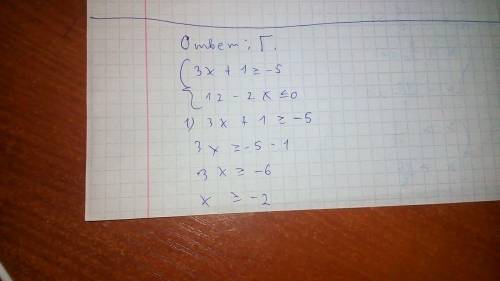 Ответ: Г.
{ 3x + 1 ≥ -5
12 - 2x ≤ 0
1) 3x + 1 ≥ -5
3x ≥ -5 - 1
3x ≥ -6
x ≥ -2